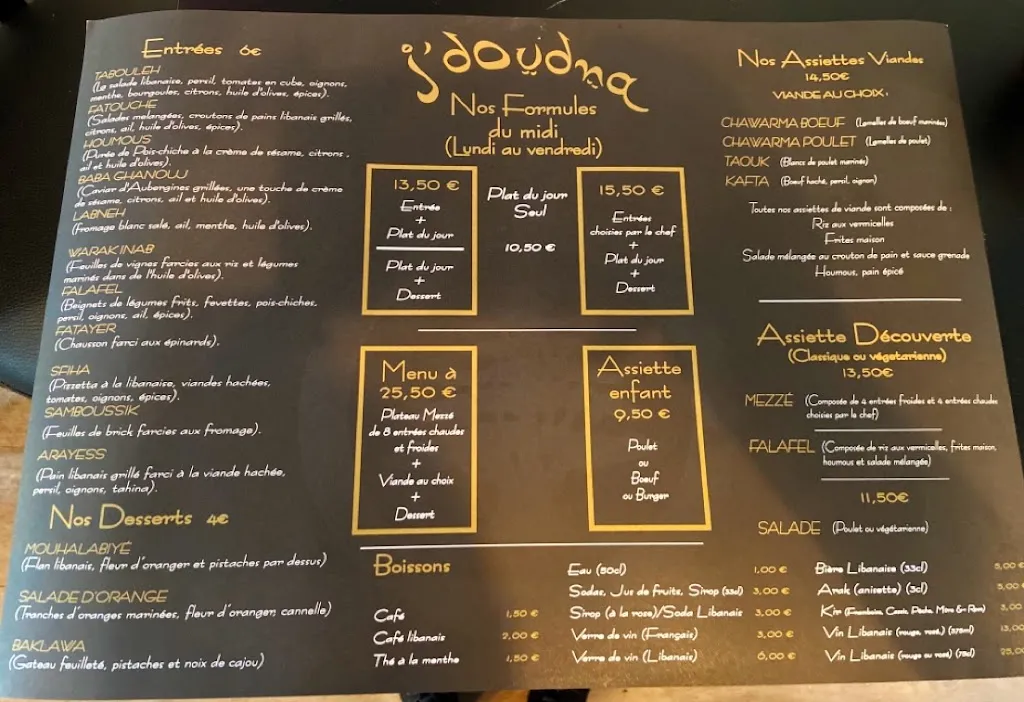 Entrées 6€
TABOULEH
(La salade libanaise, persil, tomates en cube, oignons,
menthe, bourgoules, citrons, huile d'olives, épices).
FATOUCHE
(Salades mélangées, croutons de pains libanais grillés,
citrons, ail, huile d'olives, épices).
HOUMOUS
(Purée de Pois-chiche à la crème de sésame, citrons,
ail et huile d'olives).
BABA GHANOUJ
(Caviar d'Aubergines grillées, une touche de crème
de sésame, citrons, ail et huile d'olives).
LABNEH
(fromage blanc salé, ail, menthe, huile d'olives).
WARAK INAB
(Feuilles de vignes farcies aux riz et légumes
marinés dans de l'huile d'olives).
FALAFEL
(Beignets de légumes frits, fevettes, pois-chiches,
persil, oignons, ail, épices).
FATAYER
(Chausson farci aux épinards).
SFIHA
(Pizzetta à la libanaise, viandes hachées,
tomates, oignons, épices).
SAMBOUSSIK
(Feuilles de brick farcies aux fromage).
ARAYESS
(Pain libanais grillé farci à la viande hachée,
persil, oignons, tahina).
Nos Desserts 4€
MOUHALABIYÉ
(Flan libanais, fleur d'oranger et pistaches par dessus)
SALADE D'ORANGE
(Tranches d'oranges marinées, fleur d'oranger, cannelle)
BAKLAWA
(Gateau feuilleté, pistaches et noix de cajou)
j'doudna
Nos Formules
du midi
(Lundi au vendredi)
13,50 €
Entrée
+
Plat du jour
Plat du jour
+
Dessert
Plat du jour
Seul
10,50 €
15,50 €
Entrées
choisies par le chef
+
Plat du jour
+
Dessert
Menu à
25,50 €
Plateau Mezzé
de 8 entrées chaudes
et froides
+
Viande au choix
+
Dessert
Assiette
enfant
9,50 €
Poulet
ou
Boeuf
ou Burger
Nos Assiettes Viandes
14,50€
VIANDE AU CHOIX :
CHAWARMA BOEUF (Lamelles de boeuf marinées)
CHAWARMA POULET (Lamelles de poulet)
TAOUK (Blancs de poulet marinés)
KAFTA (Boeuf haché, persil, oignon)
Toutes nos assiettes de viande sont composées de :
Riz aux vermicelles
Frites maison
Salade mélangée au crouton de pain et sauce grenade
Houmous, pain épicé
Assiette Découverte
(Classique ou végétarienne)
13,50€
MEZZÉ (Composée de 4 entrées froides et 4 entrées chaudes
choisies par le chef)
FALAFEL (Composée de riz aux vermicelles, frites maison,
houmous et salade mélangée)
11,50€
SALADE (Poulet ou végétarienne)
Boissons
Café 1,50 €
Café libanais 2,00 €
Thé à la menthe 1,50 €
Eau (50cl) 1,00 €
Sodas, Jus de fruits, Sirop (33cl) 3,00 €
Sirop (à la rose)/Soda Libanais 3,00 €
Verre de vin (Français) 3,00 €
Verre de vin (Libanais) 6,00 €
Bière Libanaise (33cl) 5,00 €
Arak (anisette) (3cl) 5,00
Kir (Framboise, Cassis, Pêche, Mûre & Rose) 3,00
Vin Libanais (rouge, rosé,) (375ml) 13,00
Vin Libanais (rouge ou rosé) (75cl) 25,00